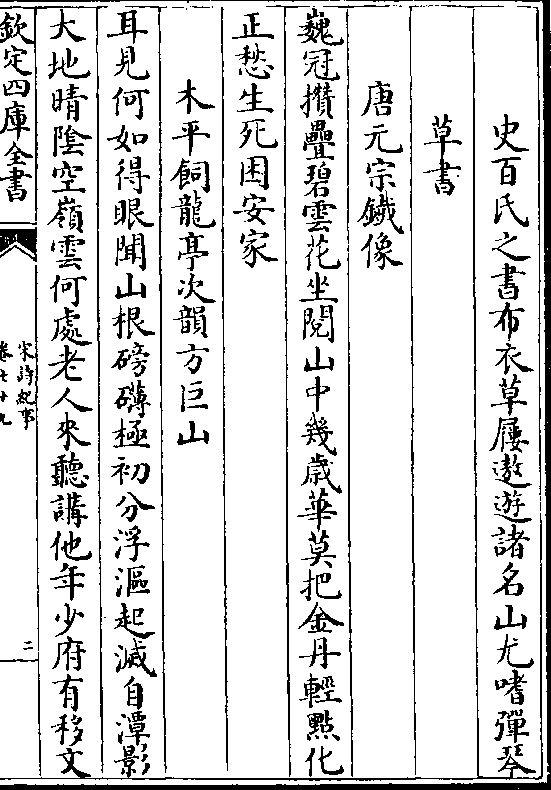 史百氏之書布衣草屨遨遊諸名山尤嗜彈琴
草書
唐元宗鐵像
巍冠攢疊碧雲花坐閱山中幾歳華莫把金丹輕㸃化
正愁生死困安家
木平飼龍亭次韻方巨山
耳見何如得眼聞山根磅礴極初分浮漚起滅自潭影
大地晴隂空嶺雲何處老人來聽講他年少府有移文
欽定四庫全書
宋詩紀事
卷七十九
二